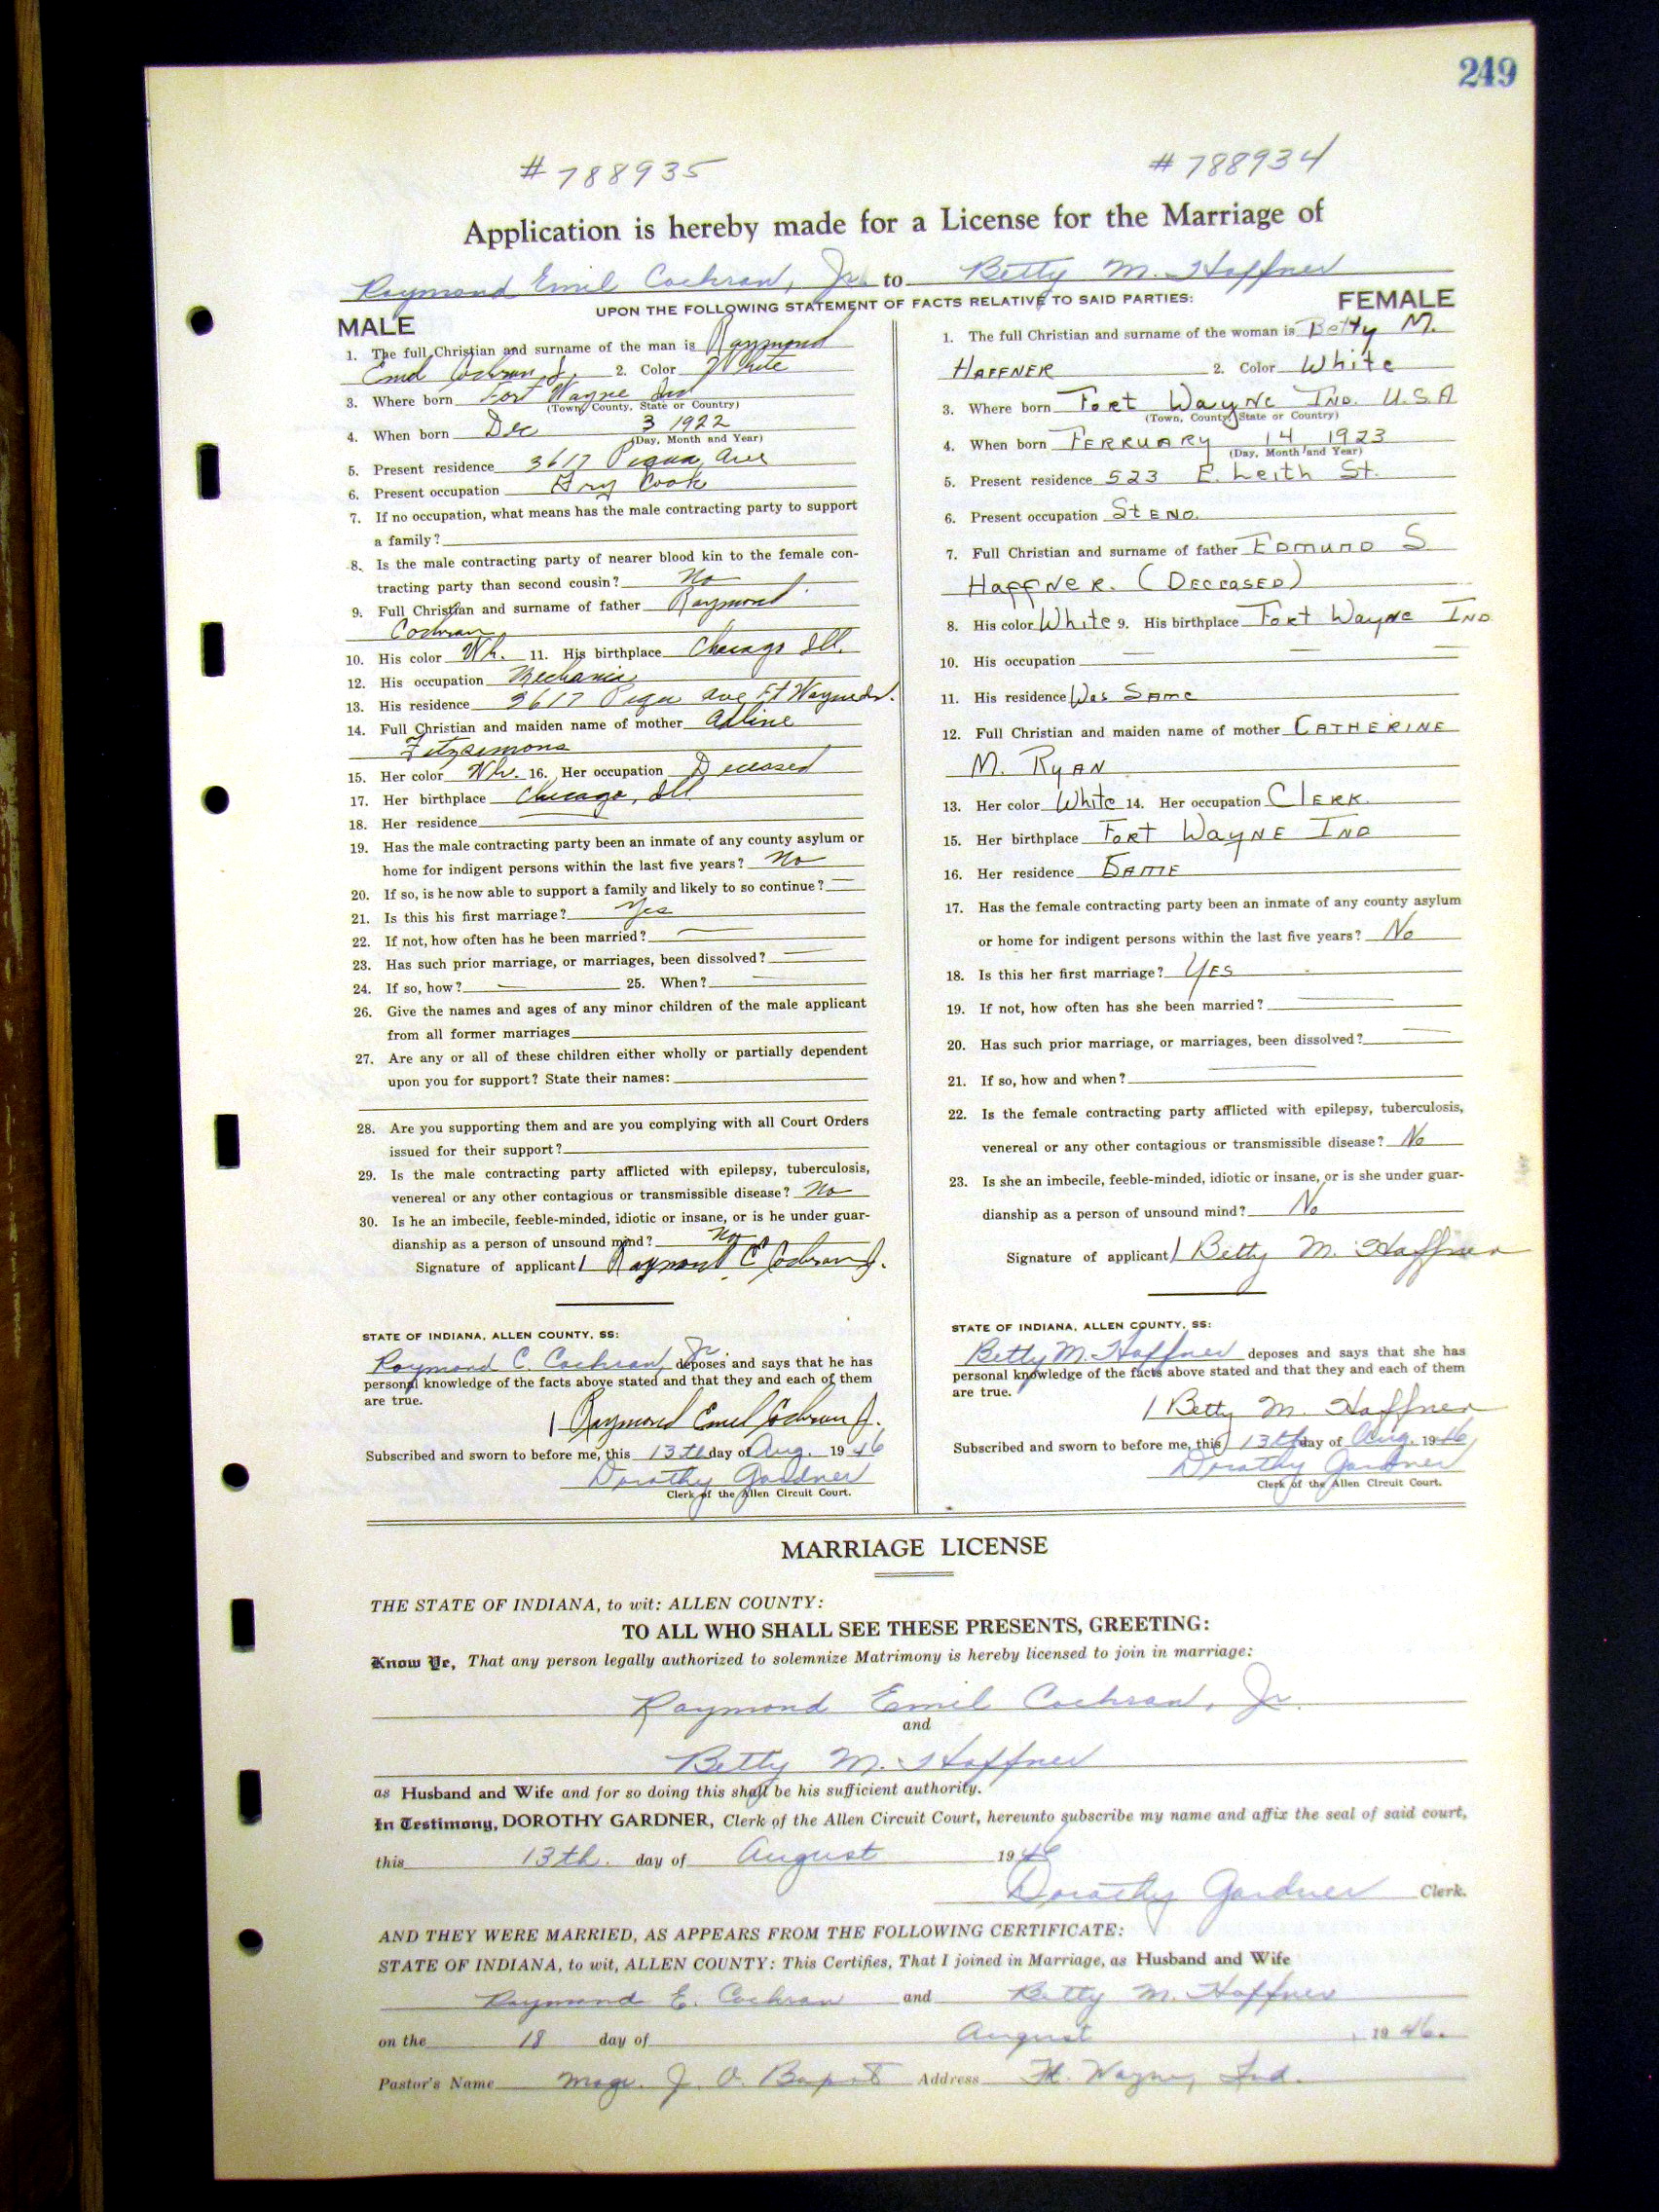 249
# 788935 # 788934
Application is hereby made for a License for the Marriage of
Raymond Emil Cochran, Jr. to Betty M. Haffner
UPON THE FOLLOWING STATEMENT OF FACTS RELATIVE TO SAID PARTIES:
MALE
1. The full Christian and surname of the man is Raymond
Emil Cochran J. 2. Color White
3. Where born Fort Wayne Ind
(Town, County, State or Country)
4. When born Dec 3 1922
(Day, Month and Year)
5. Present residence 3617 Piqua Ave
6. Present occupation Cook
7. If no occupation, what means has the male contracting party to support
a family?
8. Is the male contracting party of nearer blood kin to the female con-
tracting party than second cousin? No
9. Full Christian and surname of father Raymond
Cochran
10. His color Wh. 11. His birthplace Chicago Ill.
12. His occupation Mechanic
13. His residence 3617 Piqua Ave Ft Wayne Ind.
14. Full Christian and maiden name of mother Adline
Fitzsimons
15. Her color Wh. 16. Her occupation Deceased
17. Her birthplace Chicago, Ill
18. Her residence
19. Has the male contracting party been an inmate of any county asylum or
home for indigent persons within the last five years? No
20. If so, is he now able to support a family and likely to so continue? —
21. Is this his first marriage? Yes
22. If not, how often has he been married? —
23. Has such prior marriage, or marriages, been dissolved? —
24. If so, how? — 25. When? —
26. Give the names and ages of any minor children of the male applicant
from all former marriages
27. Are any or all of these children either wholly or partially dependent
upon you for support? State their names:
28. Are you supporting them and are you complying with all Court Orders
issued for their support?
29. Is the male contracting party afflicted with epilepsy, tuberculosis,
venereal or any other contagious or transmissible disease? No
30. Is he an imbecile, feeble-minded, idiotic or insane, or is he under guar-
dianship as a person of unsound mind? No
Signature of applicant Raymond E Cochran J.
STATE OF INDIANA, ALLEN COUNTY, SS:
Raymond C. Cochran, Jr. deposes and says that he has
personal knowledge of the facts above stated and that they and each of them
are true.
Raymond Emil Cochran J.
Subscribed and sworn to before me, this 13th day of Aug. 1946
Dorothy Gardner
Clerk of the Allen Circuit Court.
FEMALE
1. The full Christian and surname of the woman is Betty M.
HAFFNER 2. Color White
3. Where born Fort Wayne Ind. U.S.A
(Town, County, State or Country)
4. When born FEBRUARY 14, 1923
(Day, Month and Year)
5. Present residence 523 E. Leith St.
6. Present occupation STENO.
7. Full Christian and surname of father Edmund S
Haffner. (Deceased)
8. His color White 9. His birthplace Fort Wayne Ind
10. His occupation — — —
11. His residence Was Same
12. Full Christian and maiden name of mother CATHERINE
M. RYAN
13. Her color White 14. Her occupation Clerk.
15. Her birthplace Fort Wayne Ind
16. Her residence SAME
17. Has the female contracting party been an inmate of any county asylum
or home for indigent persons within the last five years? No
18. Is this her first marriage? Yes
19. If not, how often has she been married? —
20. Has such prior marriage, or marriages, been dissolved? —
21. If so, how and when? —
22. Is the female contracting party afflicted with epilepsy, tuberculosis,
venereal or any other contagious or transmissible disease? No
23. Is she an imbecile, feeble-minded, idiotic or insane, or is she under guar-
dianship as a person of unsound mind? No
Signature of applicant Betty M. Haffner
STATE OF INDIANA, ALLEN COUNTY, SS:
Betty M. Haffner deposes and says that she has
personal knowledge of the facts above stated and that they and each of them
are true.
Betty M. Haffner
Subscribed and sworn to before me, this 13th day of Aug. 1946
Dorothy Gardner
Clerk of the Allen Circuit Court.
MARRIAGE LICENSE
THE STATE OF INDIANA, to wit: ALLEN COUNTY:
TO ALL WHO SHALL SEE THESE PRESENTS, GREETING:
Know Ye, That any person legally authorized to solemnize Matrimony is hereby licensed to join in marriage:
Raymond Emil Cochran, Jr.
and
Betty M. Haffner
as Husband and Wife and for so doing this shall be his sufficient authority.
In Testimony, DOROTHY GARDNER, Clerk of the Allen Circuit Court, hereunto subscribe my name and affix the seal of said court,
this 13th. day of August 1946
Dorothy Gardner Clerk.
AND THEY WERE MARRIED, AS APPEARS FROM THE FOLLOWING CERTIFICATE:
STATE OF INDIANA, to wit, ALLEN COUNTY: This Certifies, That I joined in Marriage, as Husband and Wife
Raymond E. Cochran and Betty M. Haffner
on the 18 day of August, 1946.
Pastor's Name J. O. Address Ft. Wayne, Ind.